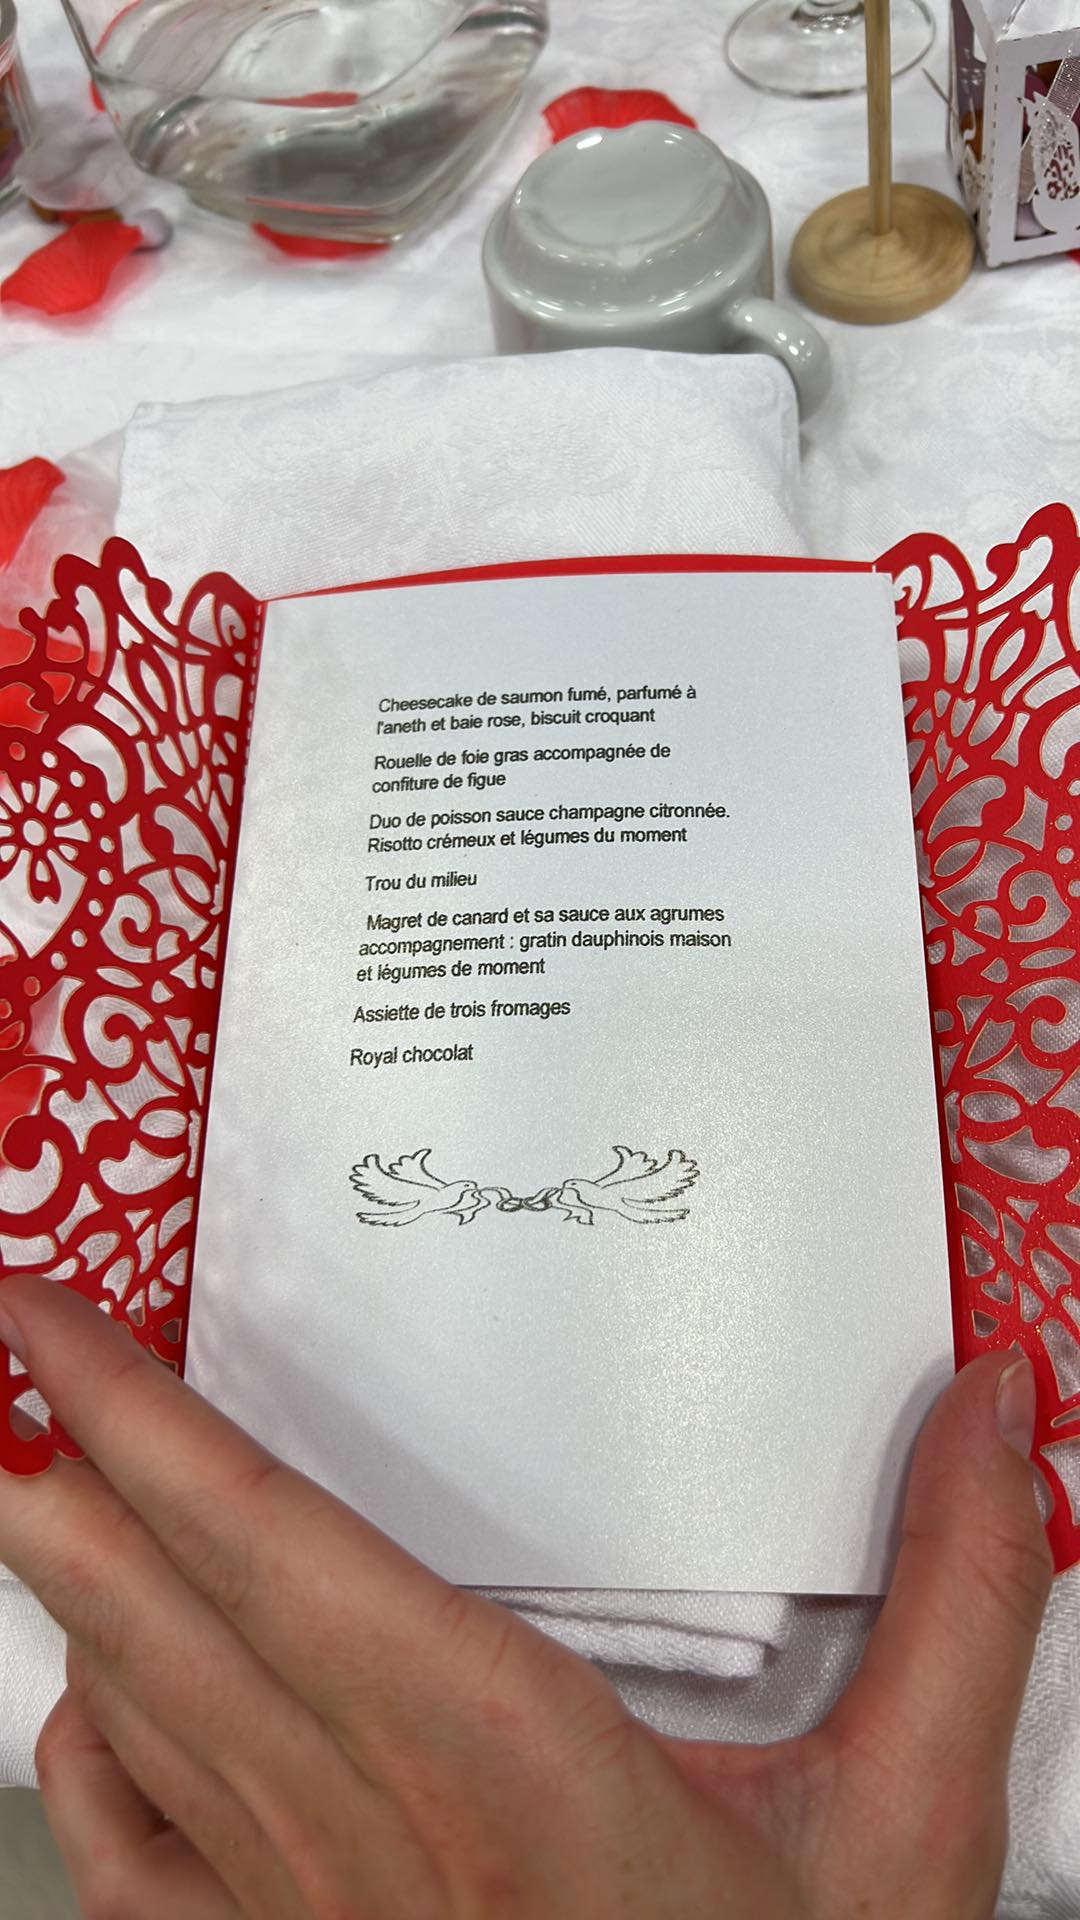 Cheesecake de saumon fumé, parfumé à
l'aneth et baie rose, biscuit croquant
Rouelle de foie gras accompagnée de
confiture de figue
Duo de poisson sauce champagne citronnée.
Risotto crémeux et légumes du moment
Trou du milieu
Magret de canard et sa sauce aux agrumes
accompagnement : gratin dauphinois maison
et légumes de moment
Assiette de trois fromages
Royal chocolat